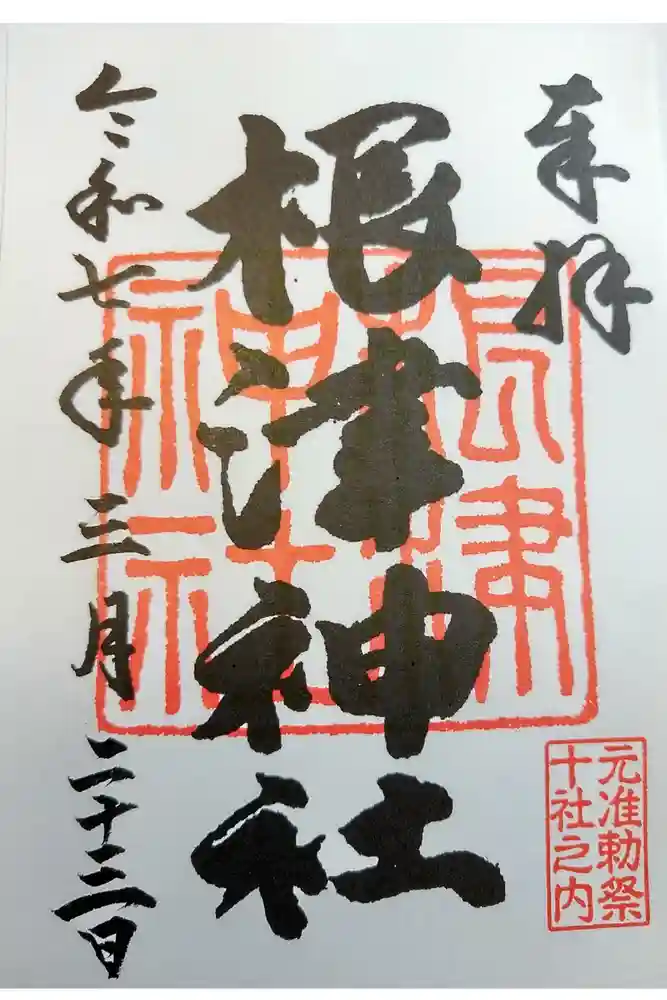 奉拝
根津神社
根津
神社
元准勅祭
十社之内
令和七年三月二十三日